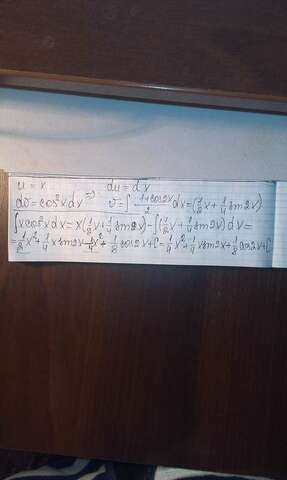 u = x du = dx
dv = cos²x dx => v = ∫ (1+cos2x)/2 dx = (1/2 x + 1/4 sin2x)
∫x cos²x dx = x(1/2 x + 1/4 sin2x) - ∫(1/2 x + 1/4 sin2x) dx =
= 1/2 x² + 1/4 x sin2x - 1/4 x² + 1/8 cos2x + C = 1/4 x² + 1/4 x sin2x + 1/8 cos2x + C